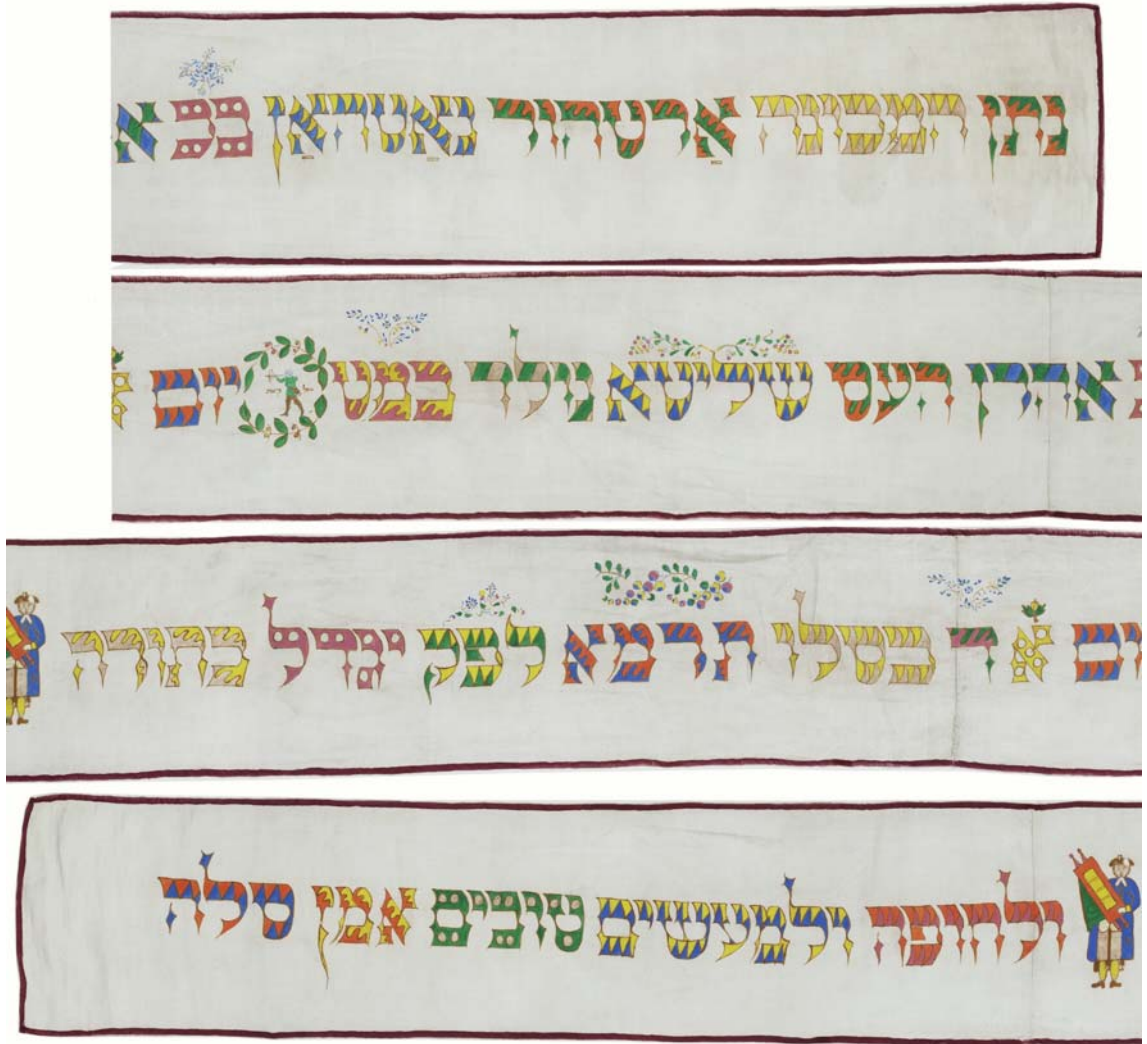 נתן המכונה ארטהור נאטהאן בכ
אהרן העס שליטא נולד במט יום
א ד בכסלו תרמא לפק יגדל בתורה
ולחופה ולמעשים טובים אמן סלה